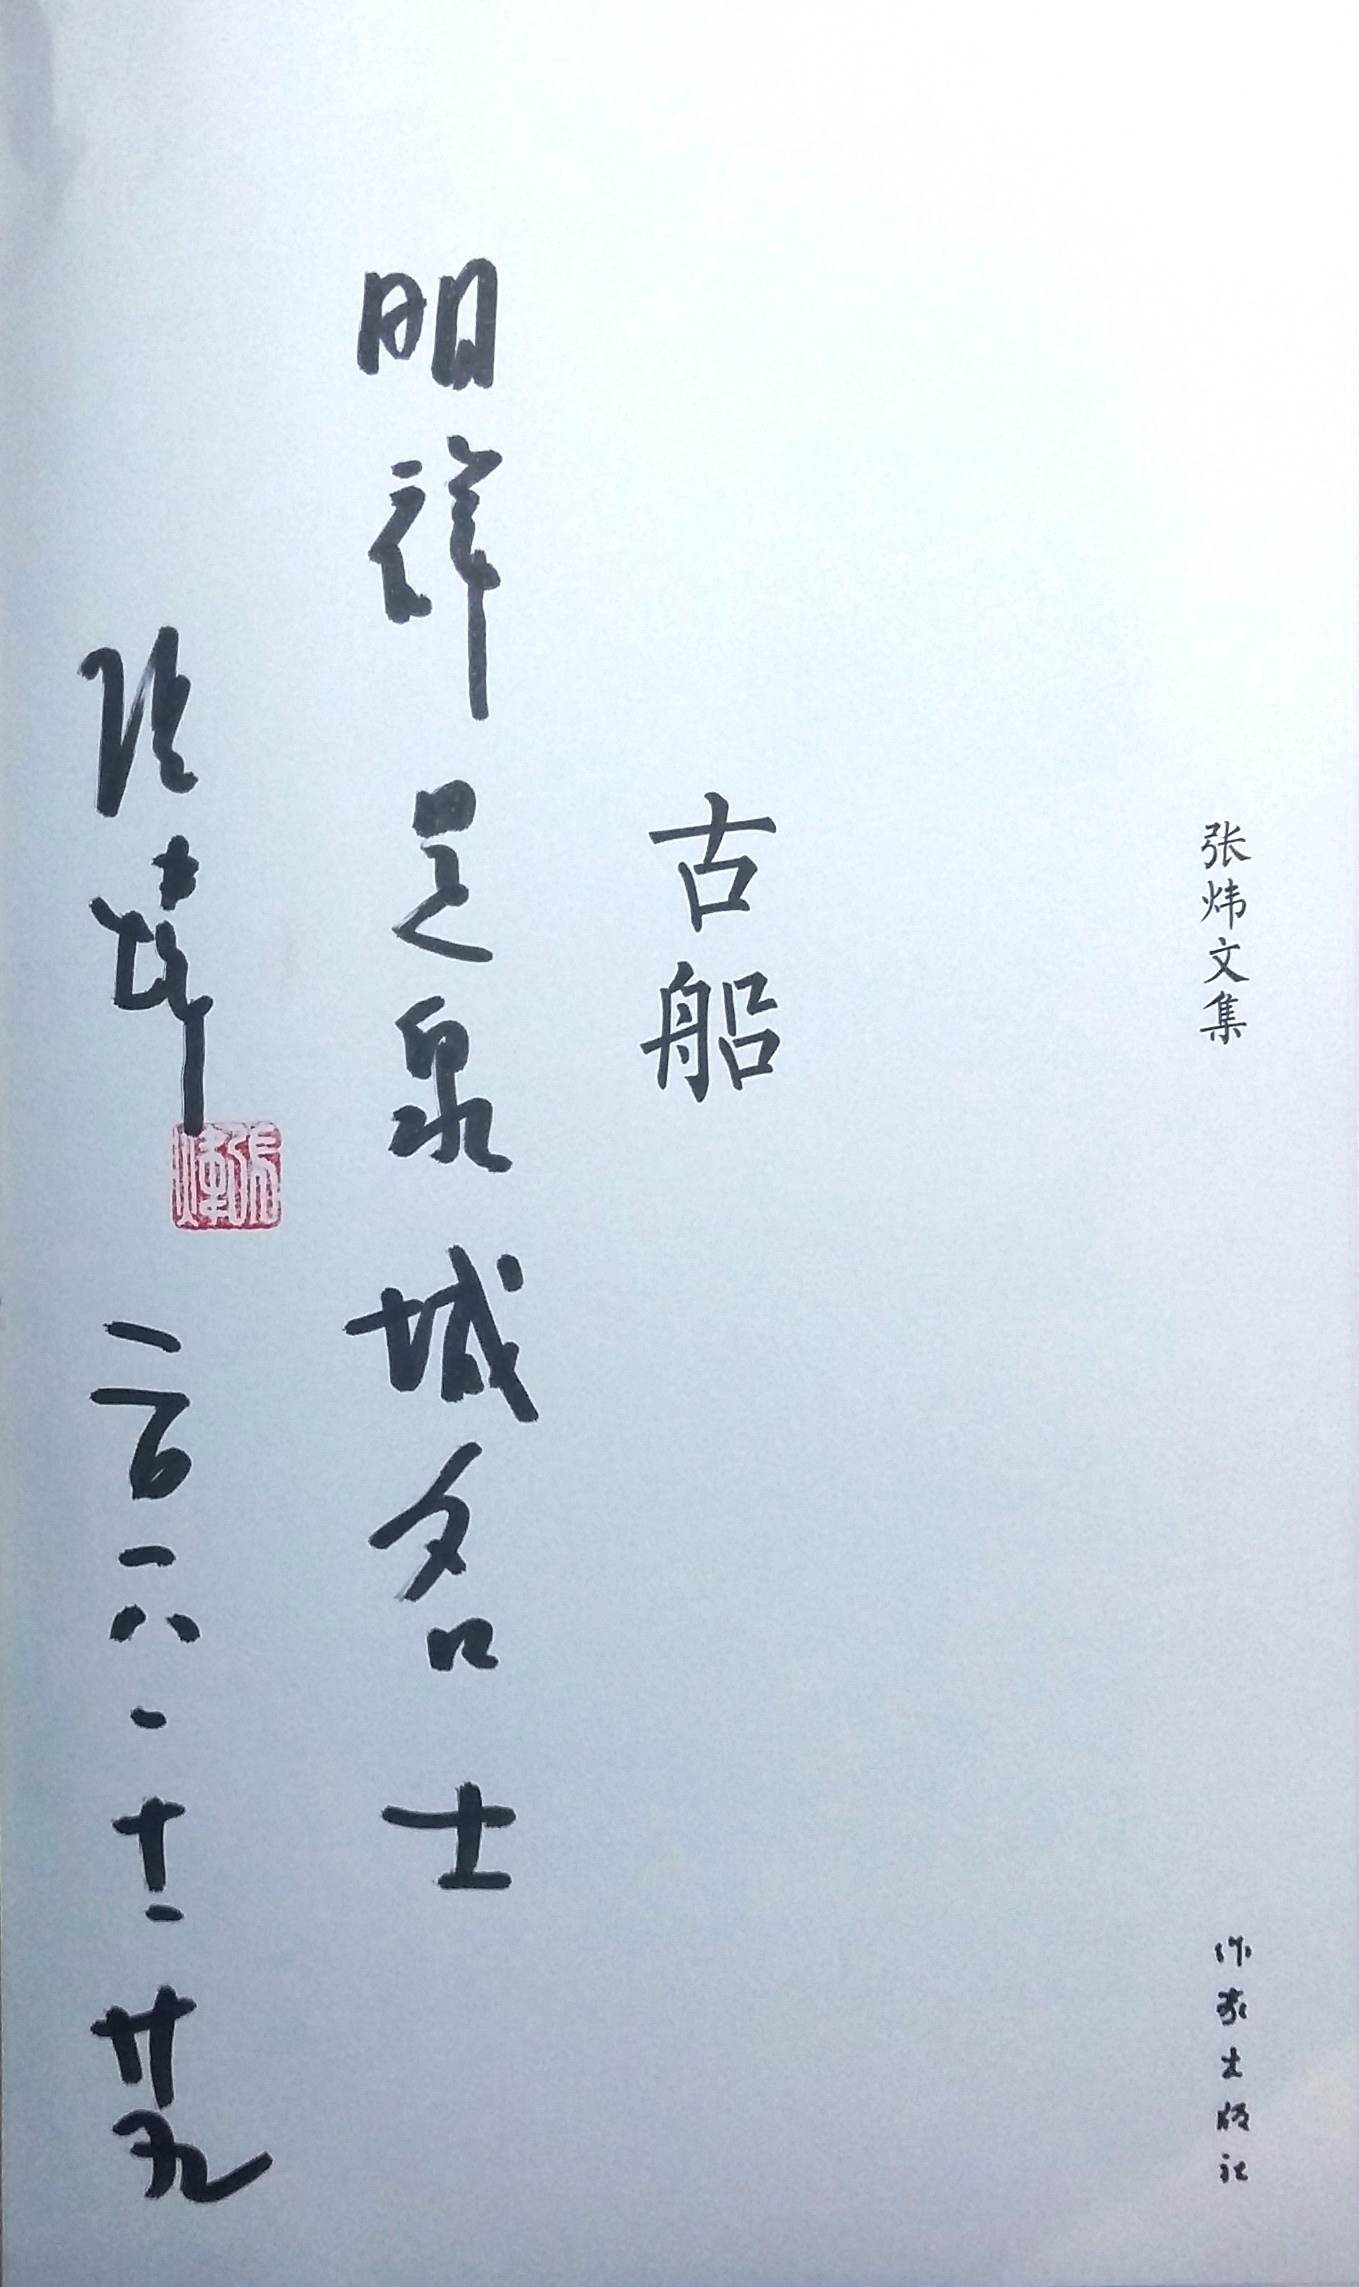 张炜文集
作家出版社
古船
明祥是泉城名士
张炜
张炜
二〇一八·十一·廿九